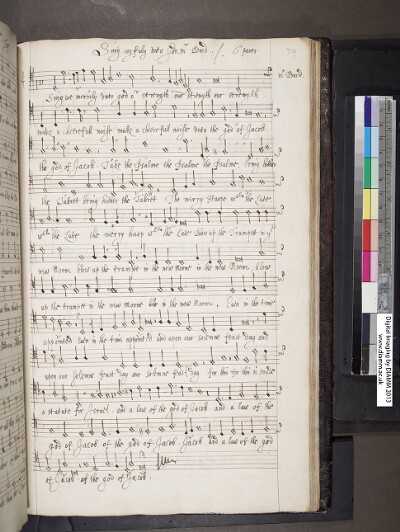 Sing joyfully unto God. Mr Bird. /. 6 parts.
79
Mr Bird.
Sing we merrily unto god or strength our strength our strength
make a cheerefull noise make a cheerefull noise unto the god of Jacob
the god of Jacob. Take the psalme the psalme the psalme. bring hither
the Tabret bring hither the Tabret. The merry harpe wth the Lute
wth the Lute the merry harp wth the Lute blow up the Trumpet in ye
new Moone blow up the trumpet in the new moone in the new Moone. blow
up the trumpet in the new moone blow in the new Moone. Even in the time
appointed even in the time appointed and upon our solemne feast day and
upon our solemne feast day our solemne feast day for this for this is made
a statute for Israel. and a law of the god of Jacob and a law of the
god of Jacob of the god of Jacob. Jacob and a law of the god
of Jacob of the god of Jacob.
Digital Imaging by DIAMM 2013
www.diamm.ac.uk